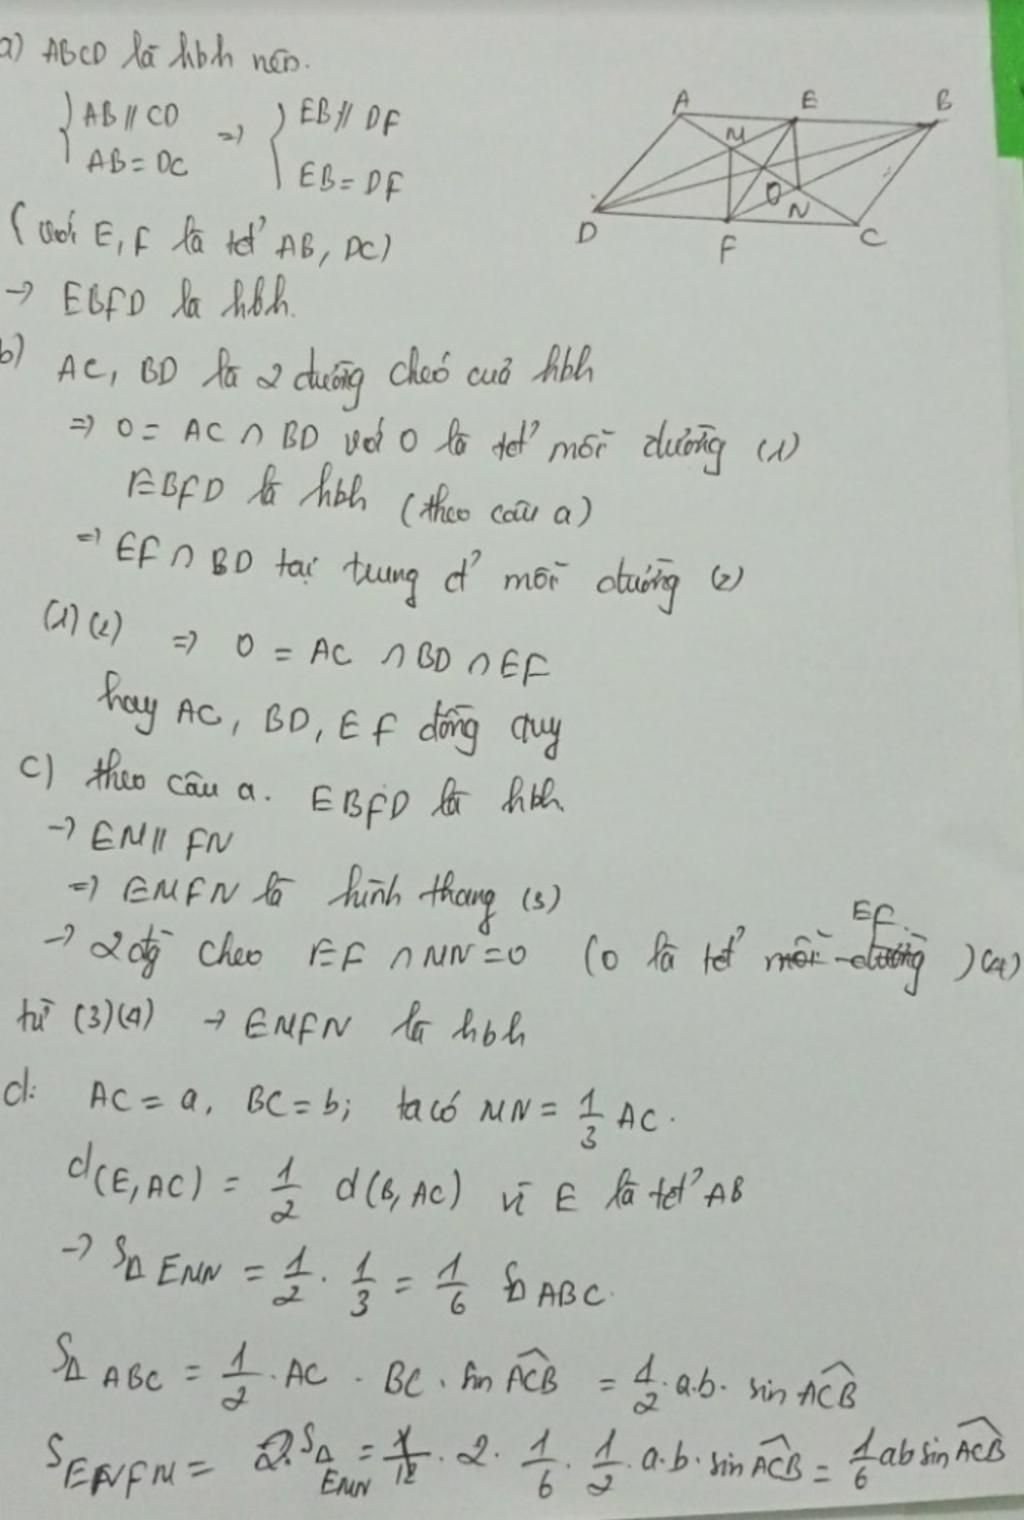 a) ABCD là hbh nên.
{ AB // CD => { EB // DF
AB = DC EB = DF
(với E, F là tđ' AB, DC)
→ EBFD là hbh.
b) AC, BD là 2 đường chéo của hbh
=> O = AC ∩ BD với O là tđ' mỗi đường (1)
EBFD là hbh (theo câu a)
=> EF ∩ BD tại trung đ' mỗi đường (2)
(1) (2) => O = AC ∩ BD ∩ EF
hay AC, BD, EF đồng quy
c) theo câu a. EBFD là hbh
→ EM // FN
=> EMFN là hình thang (3)
EF
→ 2 đg chéo EF ∩ MN = O (O là tđ' mỗi đường) (4)
từ (3)(4) → EMFN là hbh
d: AC = a, BC = b; ta có MN = 1/3 AC.
d(E, AC) = 1/2 d(B, AC) vì E là tđ' AB
→ SΔ EMN = 1/2 . 1/3 = 1/6 SΔ ABC.
SΔ ABC = 1/2 . AC . BC . sin ACB = 1/2 . a.b. sin ACB
S ENFM = 2.SΔ EMN = 2 . 1/6 . 1/2 . a.b. sin ACB = 1/6 ab sin ACB
A E B
M
O N
D F C